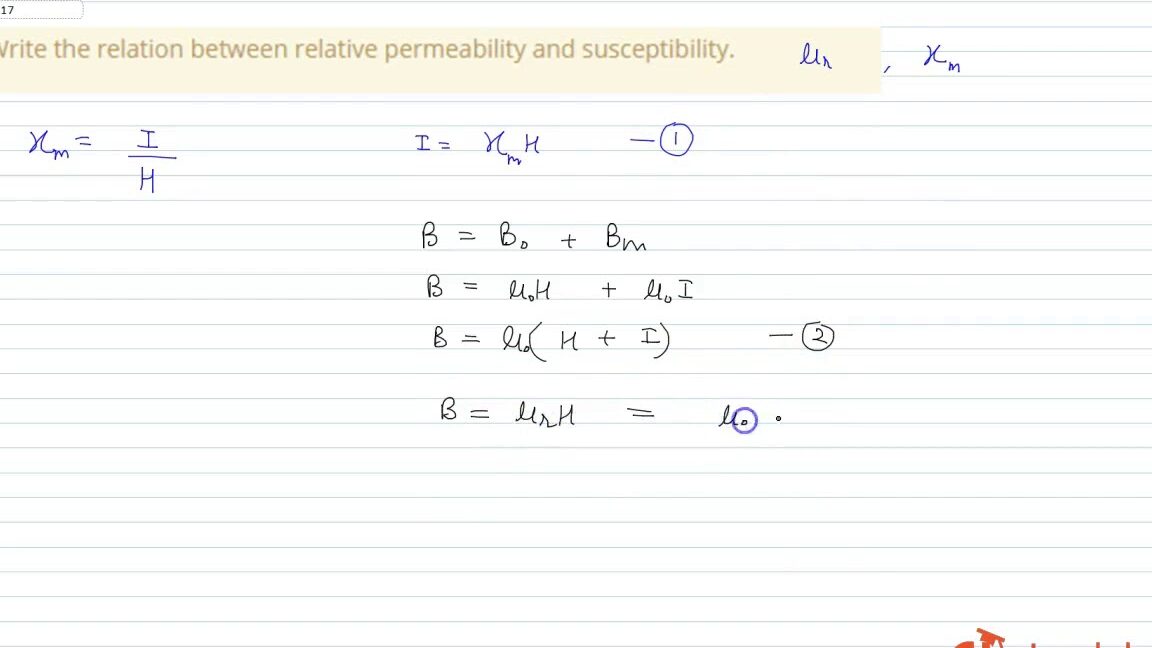 17
Write the relation between relative permeability and susceptibility. μr , χm
χm = I / H I = χm H — ①
B = B₀ + Bm
B = μ₀H + μ₀I
B = μ₀( H + I) — ②
B = μrH = μ₀ .